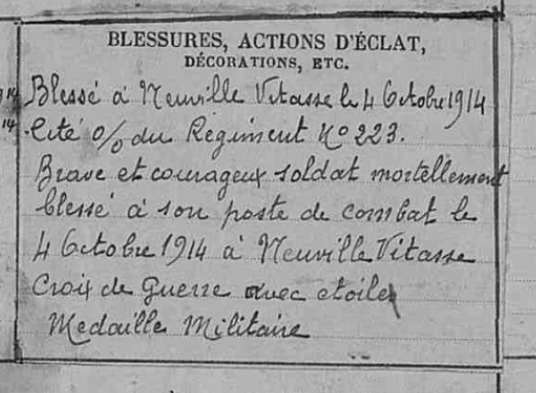 BLESSURES, ACTIONS D'ÉCLAT,
DÉCORATIONS, ETC.
Blessé à Neuville Vitasse le 4 Octobre 1914
Cité o/ du Régiment No 223.
Brave et courageux soldat mortellement
blessé à son poste de combat le
4 Octobre 1914 à Neuville Vitasse
Croix de Guerre avec etoile
Medaille Militaire